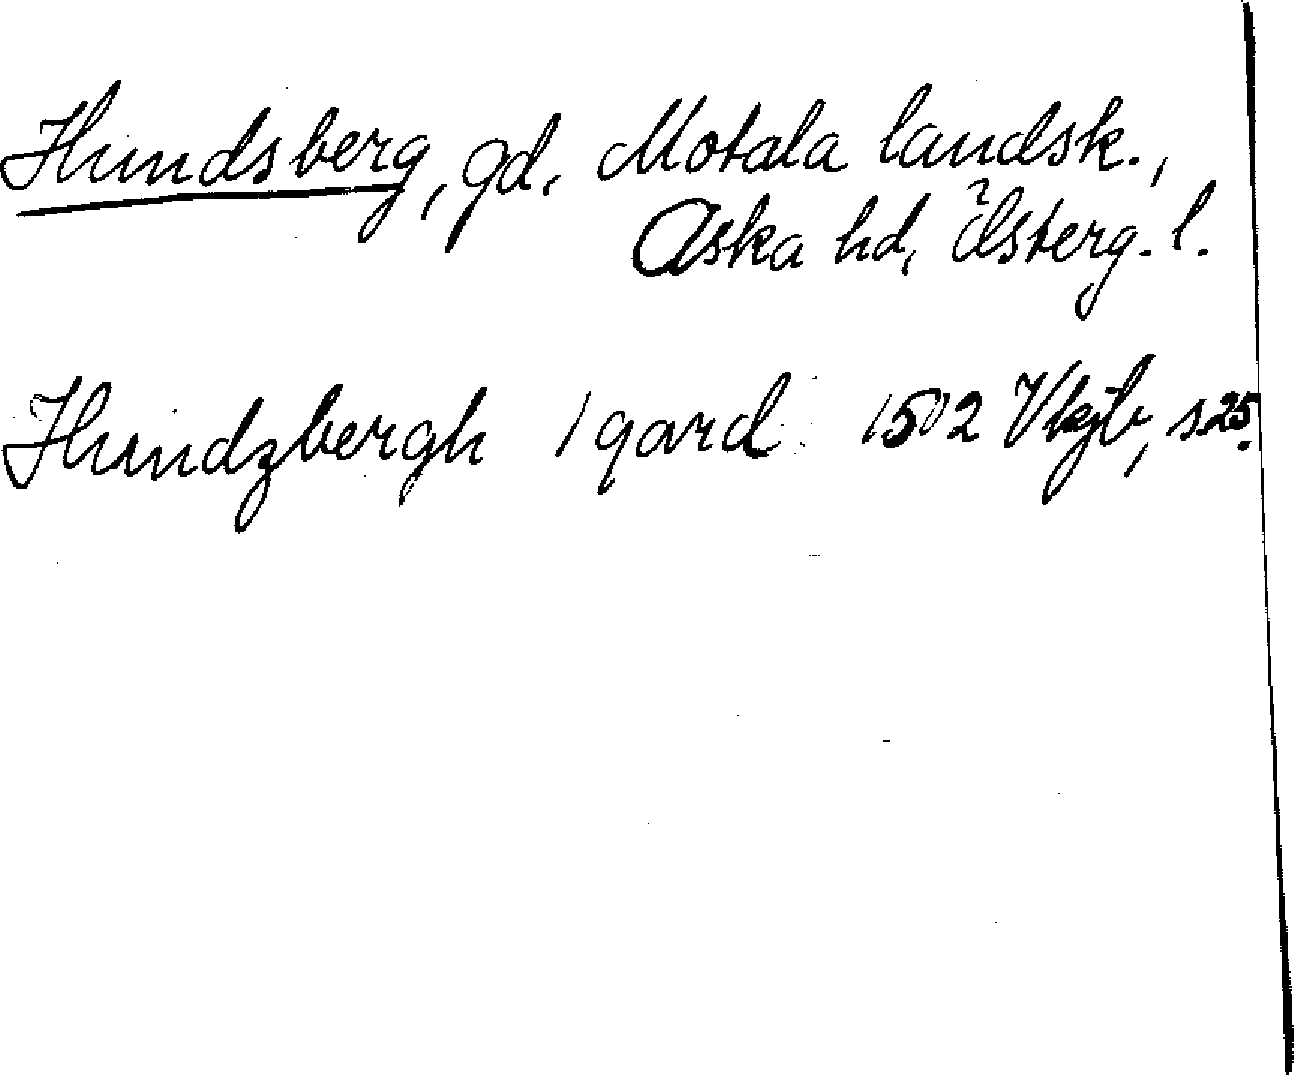 Hundsberg, gd, Motala landsk.,
Aska hd, Östergl.
Hundzbergh 1 gard 1502 Vkjb, s. 25.